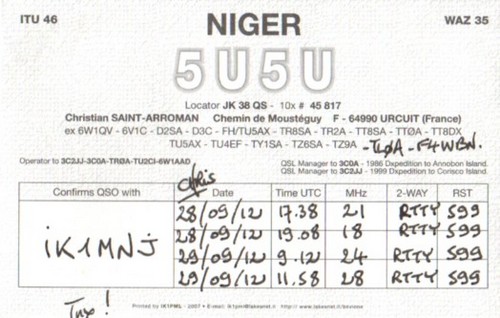 ITU 46 NIGER WAZ 35
5U5U
Locator JK 38 QS - 10x # 45 817
Christian SAINT-ARROMAN Chemin de Moustéguy F - 64990 URCUIT (France)
ex 6W1QV - 6V1C - D2SA - D3C - FH/TU5AX - TR8SA - TR2A - TT8SA - TTØA - TT8DX
TU5AX - TU4EF - TY1SA - TZ6SA - TZ9A -TLØA-F4WBN.
Operator to 3C2JJ-3C0A-TRØA-TU2CI-6W1AAD
QSL Manager to 3C0A - 1986 Dxpedition to Annobon Island.
QSL Manager to 3C2JJ - 1999 Dxpedition to Corisco Island.
Chris
Confirms QSO with Date Time UTC MHz 2-WAY RST
iK1MNJ
28/09/12 17.38 21 RTTY 599
28/09/12 19.08 18 RTTY 599
29/09/12 9.12 24 RTTY 599
29/09/12 11.58 28 RTTY 599
Tnx!
Printed by IK1PML - 2007 • E-mail: